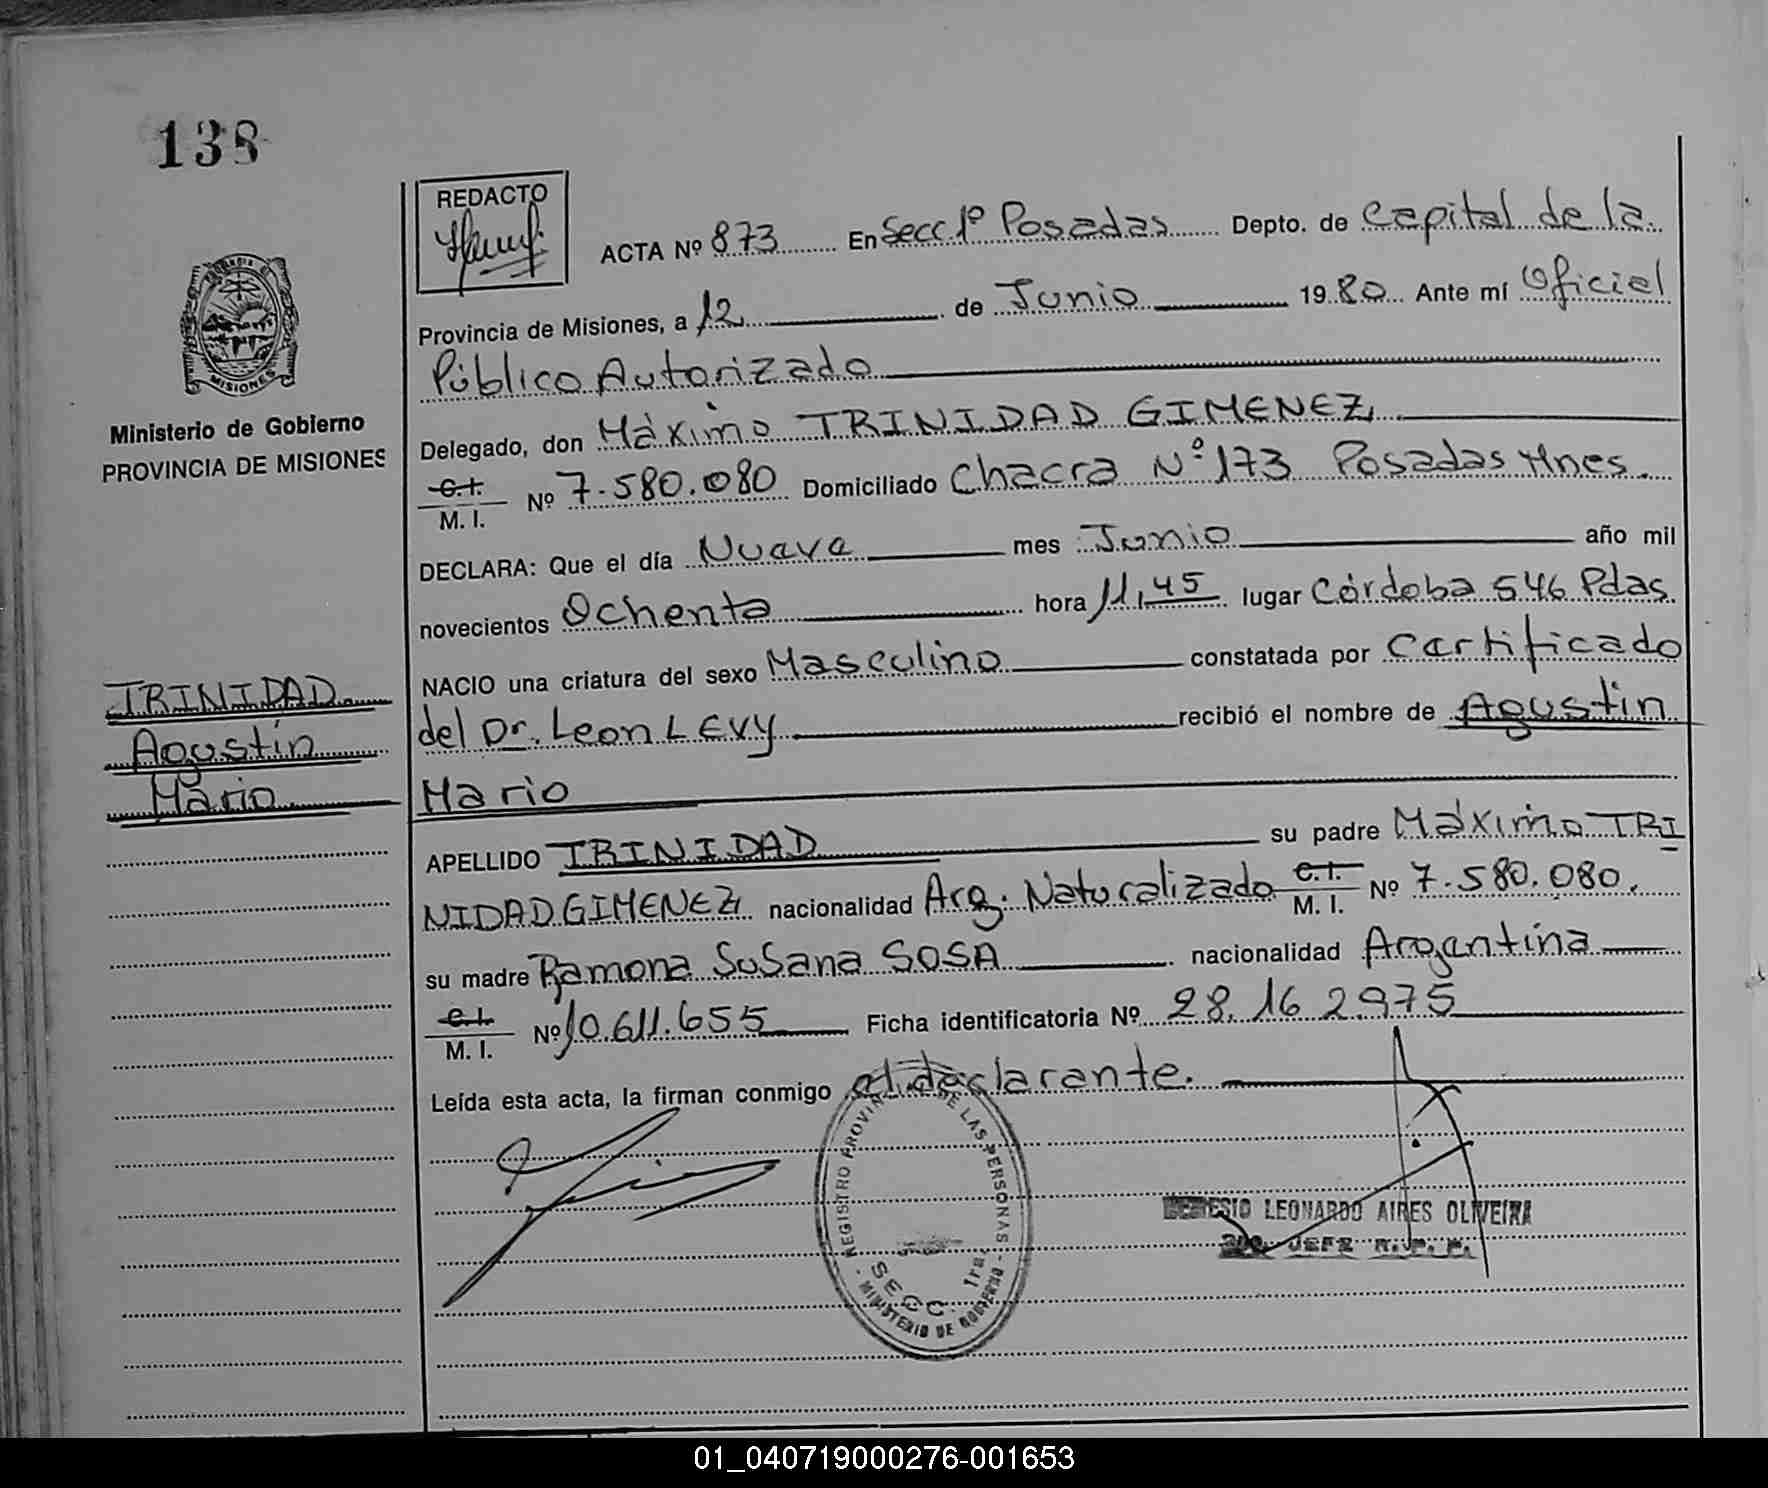 138
REDACTO
ACTA Nº 873 En Secc 1º Posadas Depto. de Capital de la
Provincia de Misiones, a 12 de Junio 1980 Ante mí Oficial
Público Autorizado
MISIONES
Ministerio de Gobierno
PROVINCIA DE MISIONES
Delegado, don Máximo TRINIDAD GIMENEZ
C.I.
M. I. Nº 7.580.080 Domiciliado Chacra Nº 173 Posadas Mnes.
DECLARA: Que el día Nueve mes Junio año mil
novecientos Ochenta hora 11,45 lugar Córdoba 546 Pdas.
NACIO una criatura del sexo Masculino constatada por Certificado
del Dr. Leon LEVY recibió el nombre de Agustin
Mario
TRINIDAD
Agustín
Mario
APELLIDO TRINIDAD su padre Máximo TRI
NIDAD GIMENEZ nacionalidad Arg. Naturalizado C.I. M. I. Nº 7.580.080.
su madre Ramona Susana SOSA nacionalidad Argentina
C.I.
M. I. Nº 10.611.655 Ficha identificatoria Nº 28.162.975
Leída esta acta, la firman conmigo el declarante.
REGISTRO PROVIN DE LAS PERSONAS
SECC. 1ra.
MINISTERIO DE GOBIERNO
LEONARDO AIRES OLIVEIRA
JEFE R. P. P.
01_040719000276-001653